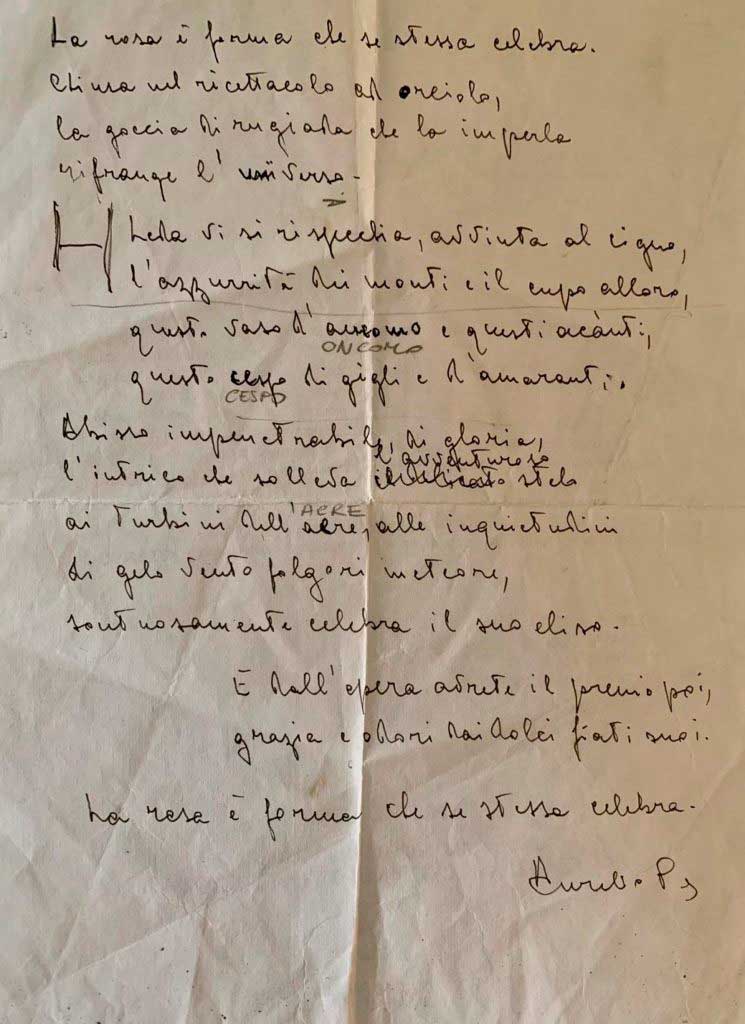 La rosa è forma che se stessa celebra.
Chiusa nel ricettacolo ad orciolo,
la goccia di rugiada che la imperla
rifrange l'universo.
Leda vi si rispecchia, avvinta al cigno,
l'azzurrità dei monti e il cupo alloro,
questo vaso d' e questi acànti,
ONCOMO
questo cespo di gigli e d'amaranti.
CESPO
Abisso impenetrabile, di gloria,
l'avventuroso
l'intrico che solleva stelo
ACRE
ai turbini dell'acre, alle inquietudini
di gelo vento folgori meteore,
sontuosamente celebra il suo eliso.
E dall'opera avrete il premio poi,
grazia e odori dai dolci fiati suoi.
La rosa è forma che se stessa celebra.
Aurelio